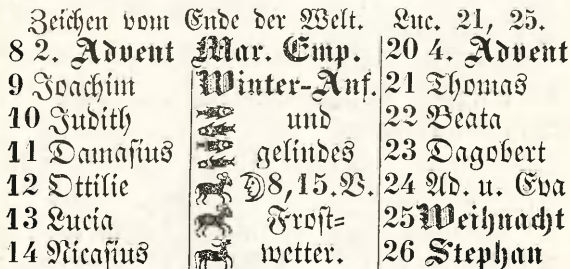 Zeichen vom Ende der Welt. Luc. 21, 25.
8 2. Advent Mar. Emp. 20 4. Advent
9 Joachim Winter-Anf. 21 Thomas
10 Judith und 22 Beata
11 Damasius gelindes 23 Dagobert
12 Ottilie 8,15.V. 24 Ad. u. Eva
13 Lucia Frost= 25 Weihnacht
14 Nicasius wetter. 26 Stephan